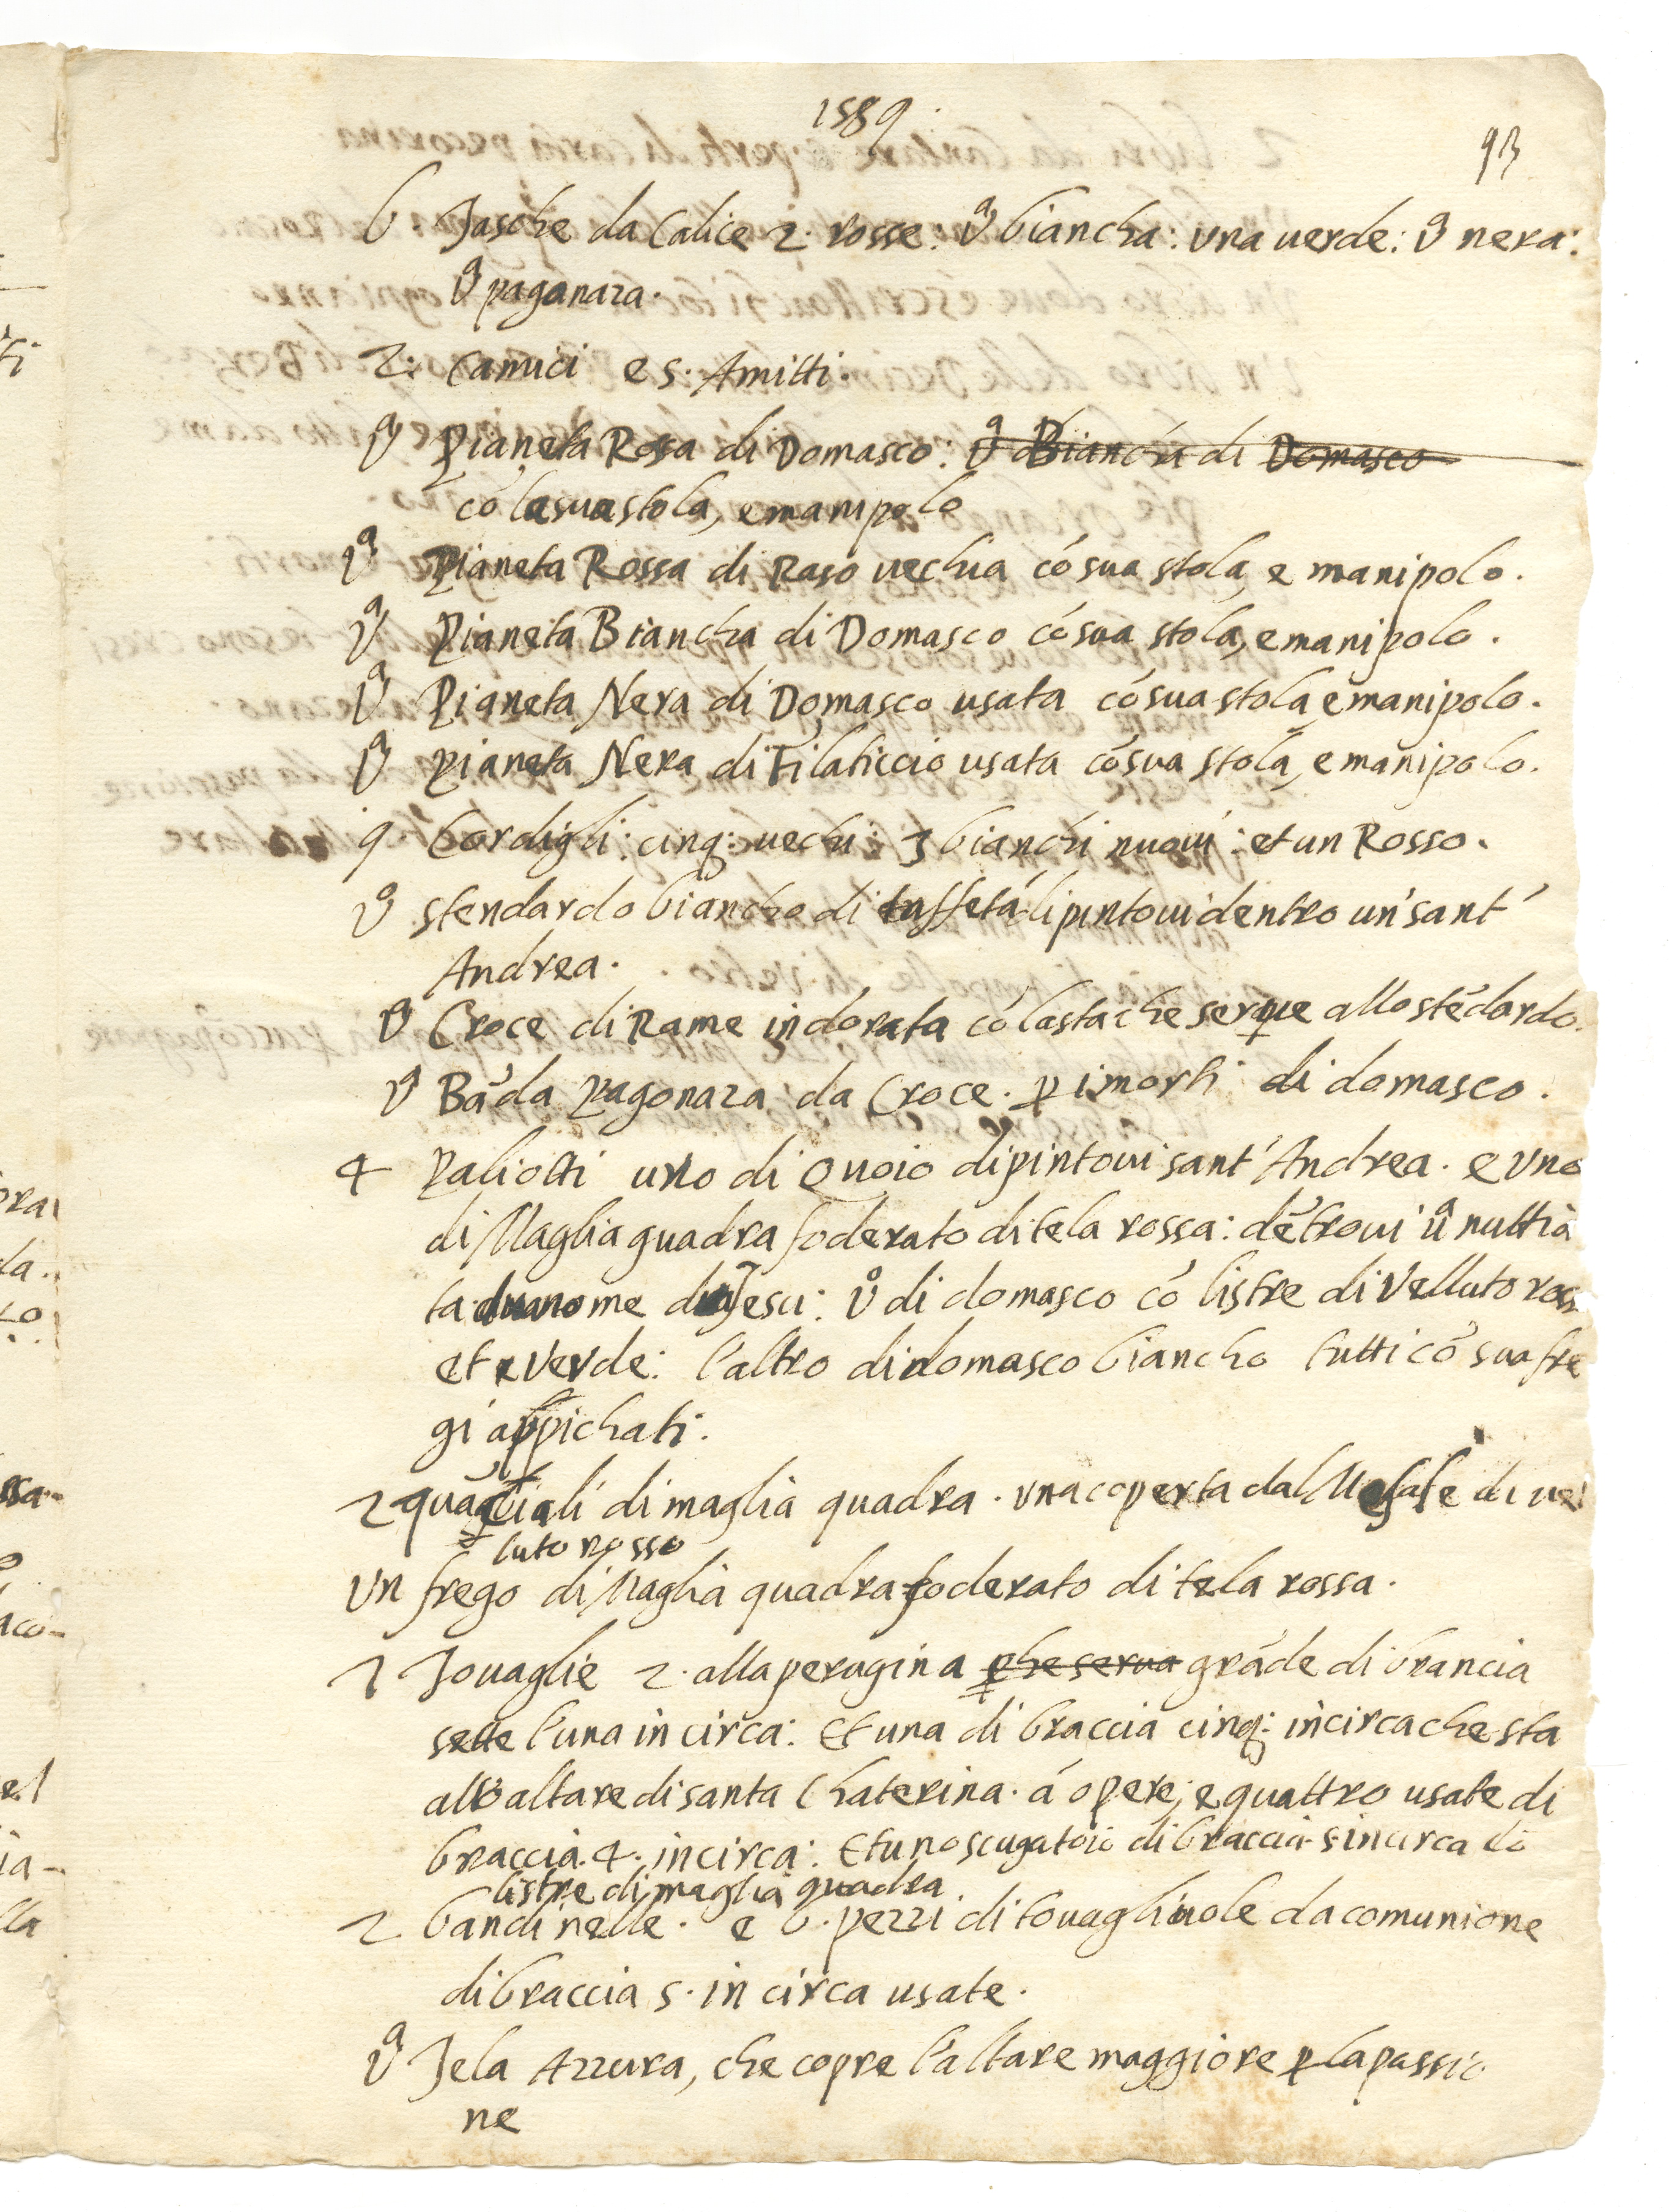 1589.
93
6 Tasche da Calice 2. rosse: vª biancha: una uerde: vª nera:
vª paganaza.
2: Camici e 5. Amitti.
vª Pianeta Rosa di Domasco: vª Biancha di Domasco
cō la sua stola, e manipolo
vª Pianeta Rossa di Raso uechia cō sua stola, e manipolo.
vª Pianeta Biancha di Domasco cō sua stola, e manipolo.
vª Pianeta Nera di Domasco usata cō sua stola e manipolo.
vª pianeta Nera di Filaticcio usata cō sua stola, e manipolo.
9 Cordigli: cinq: uechi: 3 bianchi nuoui: et un Rosso.
vº stendardo biancho di taffetà dipintoui dentro un' sant'
Andrea.
vª Croce di Rame indorata cō lasta che serue allo stēdardo.
vª Bāda pagonaza da Croce. ꝑ i morti di domasco.
4 Paliotti uno di Quoio dipintoui sant' Andrea. e uno
di Maglia quadra foderato di tela rossa: dētroui ū nuttia
ta nome Jesu: vº di domasco cō listre di Velluto ross
et verde: l'altro di domasco biancho tutti cō sua fre
gi appichati.
2 di maglia quadra. una coperta dal Mesale di uel
luto rosso
Un frego di Maglia quadra foderato di tela rossa.
7 Touaglie 2. alla perugina che serua grāde di brancia
sette l'una in circa: Et una di braccia cinq: in circa che sta
all'altare di santa Chaterina. á opere; e quattro usate di
braccia. 4. in circa: Et uno scugatoio di braccia 5 in circa cō
listre di maglia quadra.
2 bandinelle. e 6. pezzi di touagliuole da comunione
di braccia 5. in circa usate.
vª Tela Azzura, che copre l'altare maggiore ꝑ la passio
ne